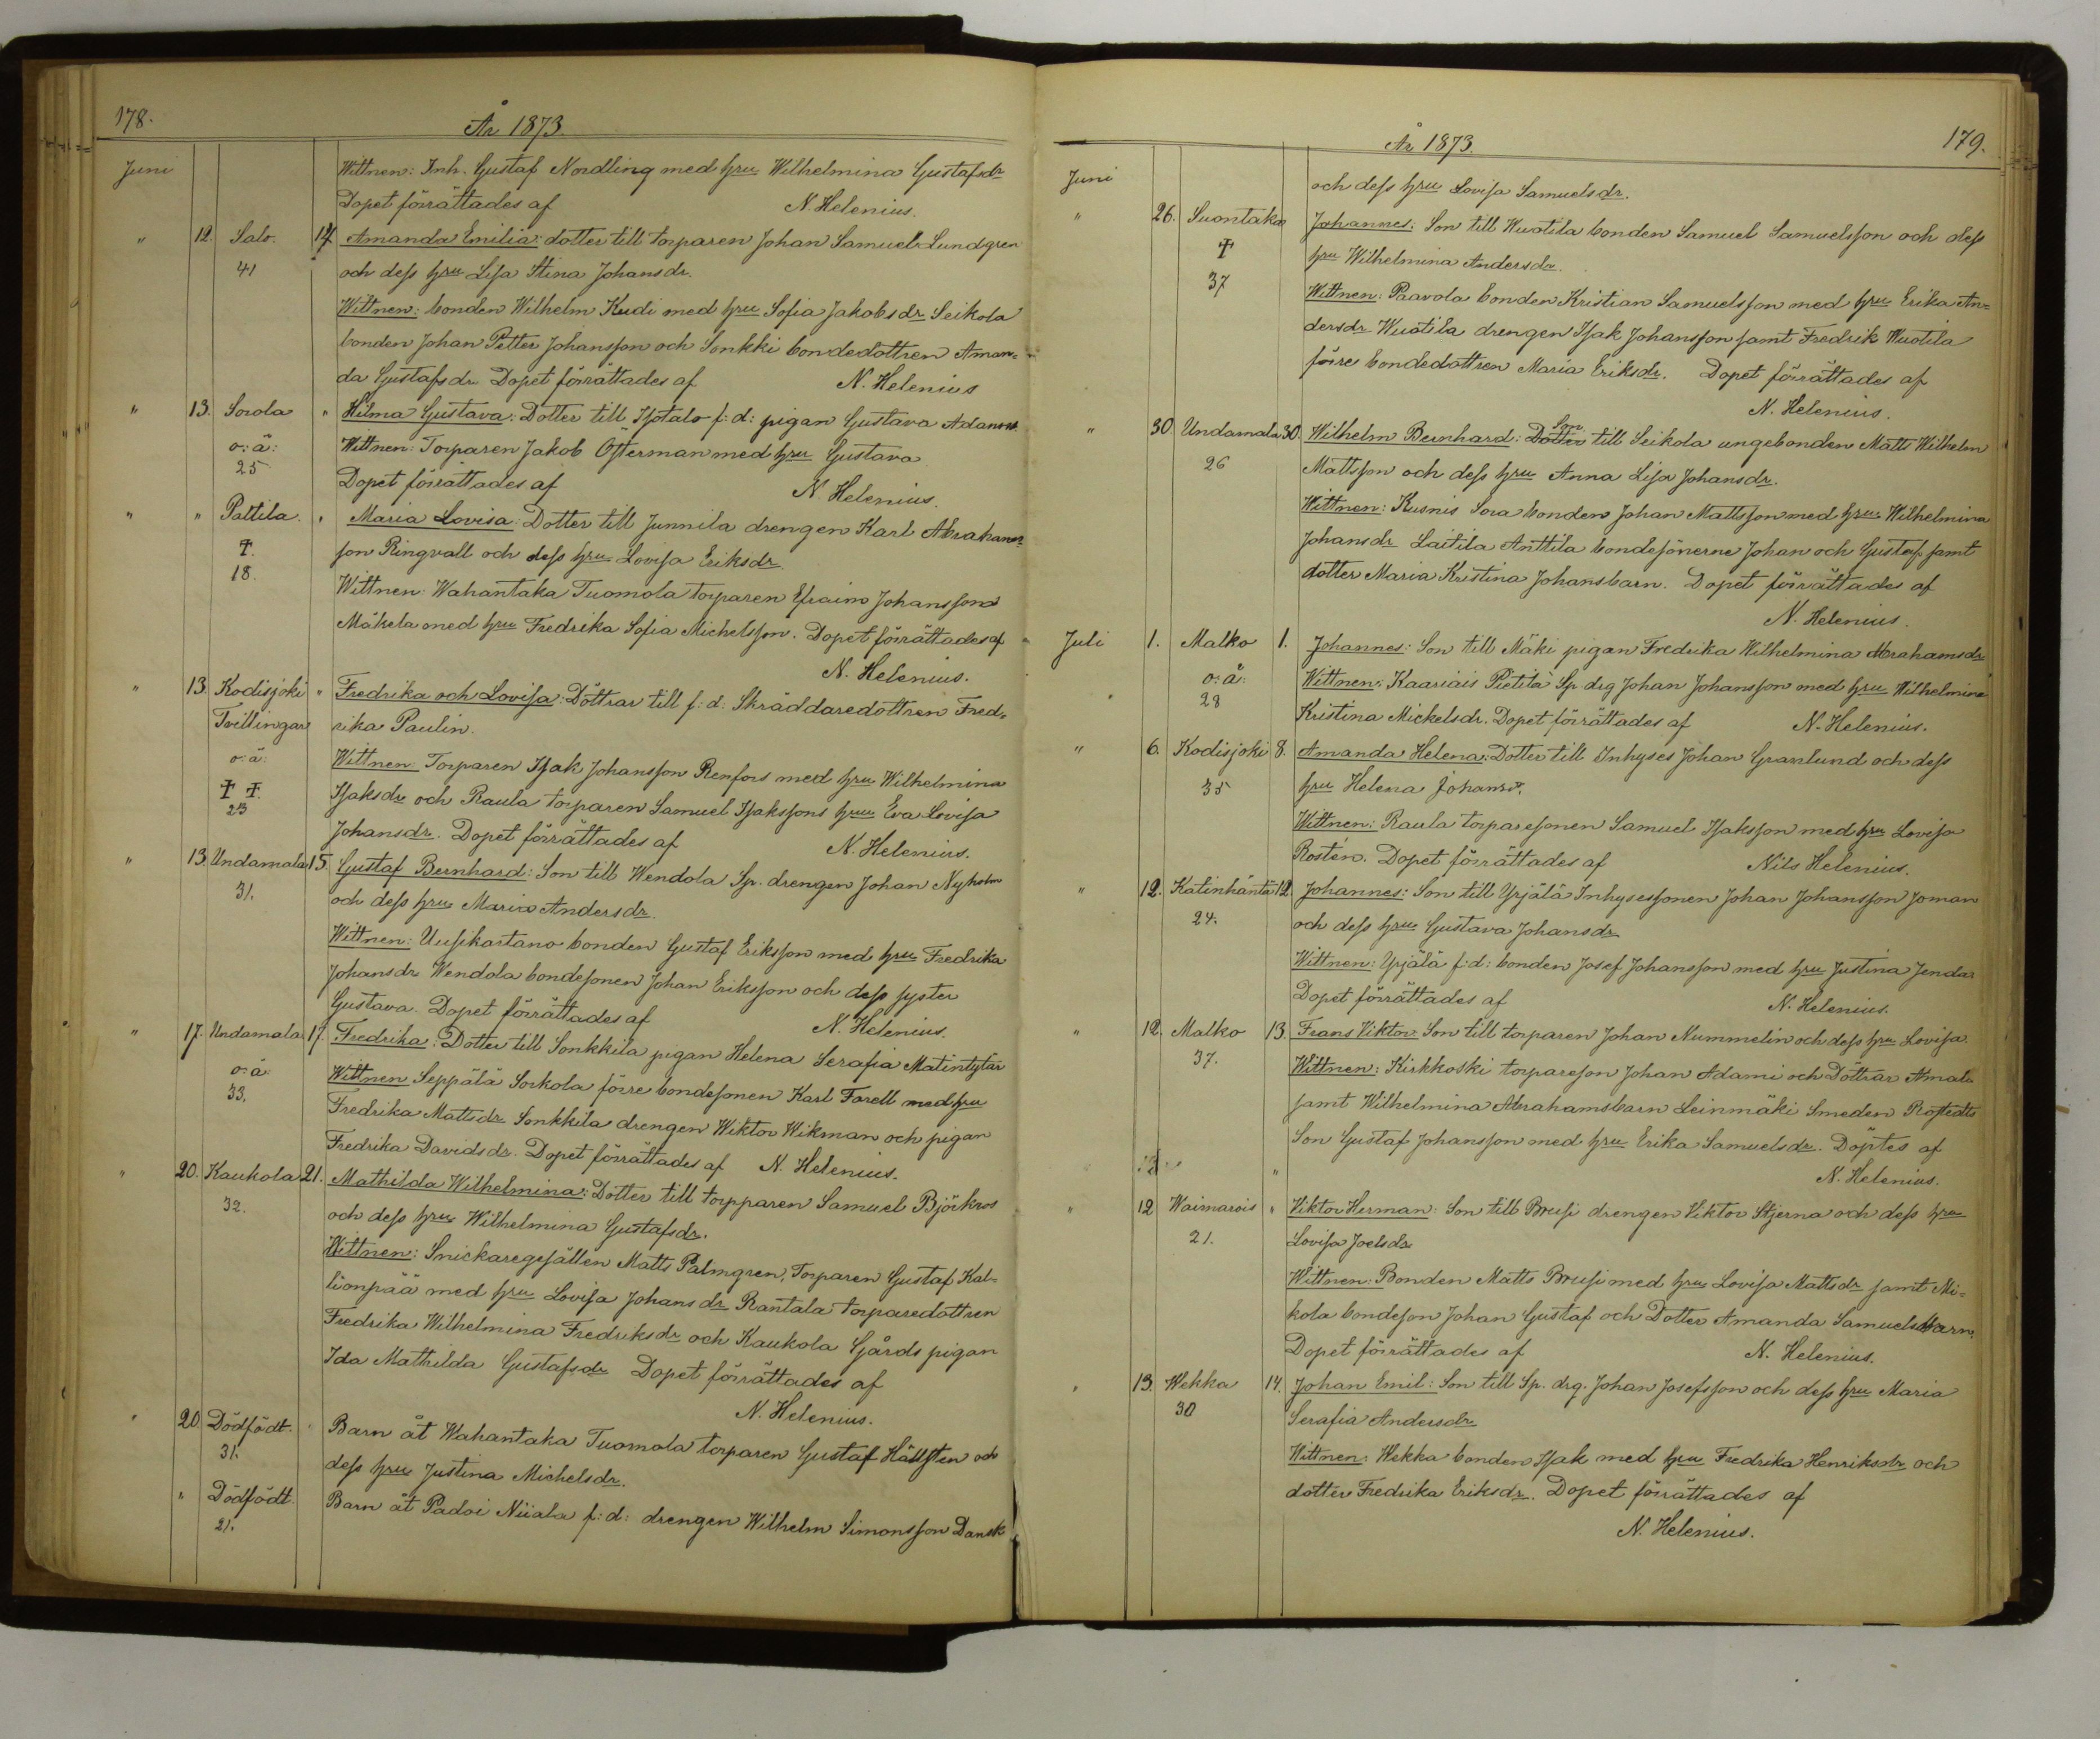 178.
År 1873.
Juni Wittnen: Inh. Gustaf Nordling med hru Wilhelmina Gustafsdr
Dopet förrättades af N. Helenius.
" 12. Salo. 14 Amanda Emilia: dotter till torparen Johan Samuel Lundgren
41 och dess hru Lisa Stina Johansdr.
Wittnen: bonden Wilhelm Kudi med hru Sofia Jakobsdr Seikola
bonden Johan Petter Johansson och Sonkki bondedottren Aman-
da Gustafsdr Dopet förrättades af N. Helenius
" 13. Sorola " Hilma Gustava: Dotter till Isotalo f: d: pigan Gustava Adamsdr.
o: ä: Wittnen: Torparen Jakob Österman med hru Gustava
25 Dopet förrättades af N Helenius.
" " Pattila. " Maria Lovisa: Dotter till Junnila drengen Karl Abrahams-
†. son Ringvall och dess hru Lovisa Eriksdr
18. Wittnen: Wahantaka Tuomola torparen Efraim Johansson
Mäkela med hru Fredrika Sofia Michelsson. Dopet förrättades af
N. Helenius.
" 13. Kodisjoki " Fredrika och Lovisa: Döttrar till f: d: Skräddaredottren Fred-
Tvillingar rika Paulin.
o: ä: Wittnen: Torparen Isak Johansson Renfors med hru Wilhelmina
† †. Isaksdr och Raula torparen Samuel Isakssons hru Eva Lovisa
23 Johansdr. Dopet förrättades af N. Helenius.
" 13. Undamala 15. Gustaf Bernhard: Son till Wendola Sp. drengen Johan Nyholm
31. och dess hru Maria Andersdr.
Wittnen: Uusikartano bonden Gustaf Eriksson med hru Fredrika
Johansdr Wendola bondesonen Johan Eriksson och dess syster
Gustava. Dopet förrättades af N. Helenius.
" 17. Undamala 17. Fredrika: Dotter till Sonkkila pigan Helena Serafia Matintytär
o: ä: Wittnen Seppälä Sorkola förre bondesonen Karl Forell med hru
33. Fredrika Mattsdr Sonkkila drengen Wiktor Wikman och pigan
Fredrika Davidsdr. Dopet förrättades af N. Helenius.
" 20. Kaukola 21. Mathilda Wilhelmina: Dotter till torpparen Samuel Björkros
32. och dess hru Wilhelmina Gustafsdr.
Wittnen: Snickaregesällen Matts Palmgren, Torparen Gustaf Kal-
lionpää med hru Lovisa Johansdr Rantala torparedottren
Fredrika Wilhelmina Fredriksdr och Kaukola Gårds pigan
Ida Mathilda Gustafsdr Dopet förrättades af
N. Helenius.
" 20. Dödfödt. " Barn åt Wahantaka Tuomola torparen Gustaf Hällsten och
31. dess hru Justina Michelsdr.
" Dödfödt. Barn åt Padoi Niiala f: d: drengen Wilhelm Simonsson Dansk
21.
År 1873. 179.
Juni och dess hru Lovisa Samuelsdr.
" 26. Suontaka Johannes: Son till Wuotila bonden Samuel Samuelsson och dess
† hru Wilhelmina Andersdr.
37 Wittnen: Paavola bonden Kristian Samuelsson med hru Erika An-
dersdr Wuotila drengen Isak Johansson samt Fredrik Wuotila
förre bondedottren Maria Eriksdr. Dopet förrättades af
N. Helenius.
" 30. Undamala 30. Wilhelm Bernhard: Dotter Son till Seikola ungebonden Matts Wilhelm
26 Mattsson och dess hru Anna Lisa Johansdr.
Wittnen: Kusnis Sora bonden Johan Mattsson med hru Wilhelmina
Johansdr Laitila Anttila bondesönerne Johan och Gustaf samt
dotter Maria Kristina Johansbarn. Dopet förrättades af
N. Helenius.
Juli 1. Malko 1. Johannes: Son till Mäki pigan Fredrika Wilhelmina Abrahamsdr
o: ä: Wittnen: Kaariais Pietilä Sp drg Johan Johansson med hru Wilhelmina
" 28 Kristina Mickelsdr. Dopet förrättades af N. Helenius.
" 6. Kodisjoki 8. Amanda Helena: Dotter till Inhyses Johan Granlund och dess
35 hru Helena Johansdr.
Wittnen: Raula torparesonen Samuel Isaksson med hru Lovisa
Rostén. Dopet förrättades af Nils Helenius.
" 12. Katinhäntä 12. Johannes: Son till Yrjälä Inhysessonen Johan Johansson Joman
24. och dess hru Gustava Johansdr
Wittnen: Yrjälä f: d: bonden Josef Johansson med hru Justina Jendar
Dopet förrättades af N. Helenius.
" 12. Malko 13. Frans Viktor: Son till torparen Johan Nummelin och dess hru Lovisa
37. Wittnen: Kirkkoski torpareson Johan Adami och Döttrar Amal
samt Wilhelmina Abrahamsbarn Leinmäki Smeden Rostedts
Son Gustaf Johansson med hru Erika Samuelsdr. Döptes af
N. Helenius.
" 12 Waimarois " Viktor Herman: Son till Brusi drengen Viktor Stjerna och dess hru
21. Lovisa Joelsdr
Wittnen: Bonden Matts Brusi med hru Lovisa Mattsdr samt Mi-
kola bondeson Johan Gustaf och Dotter Amanda Samuelsbarn.
Dopet förrättades af N. Helenius.
" 13. Wekka 14. Johan Emil: Son till Sp. drg. Johan Josefsson och dess hru Maria
30 Serafia Andersdr
Wittnen: Wekka bonden Isak med hru Fredrika Henriksdr och
dotter Fredrika Eriksdr. Dopet förrättades af
N. Helenius.